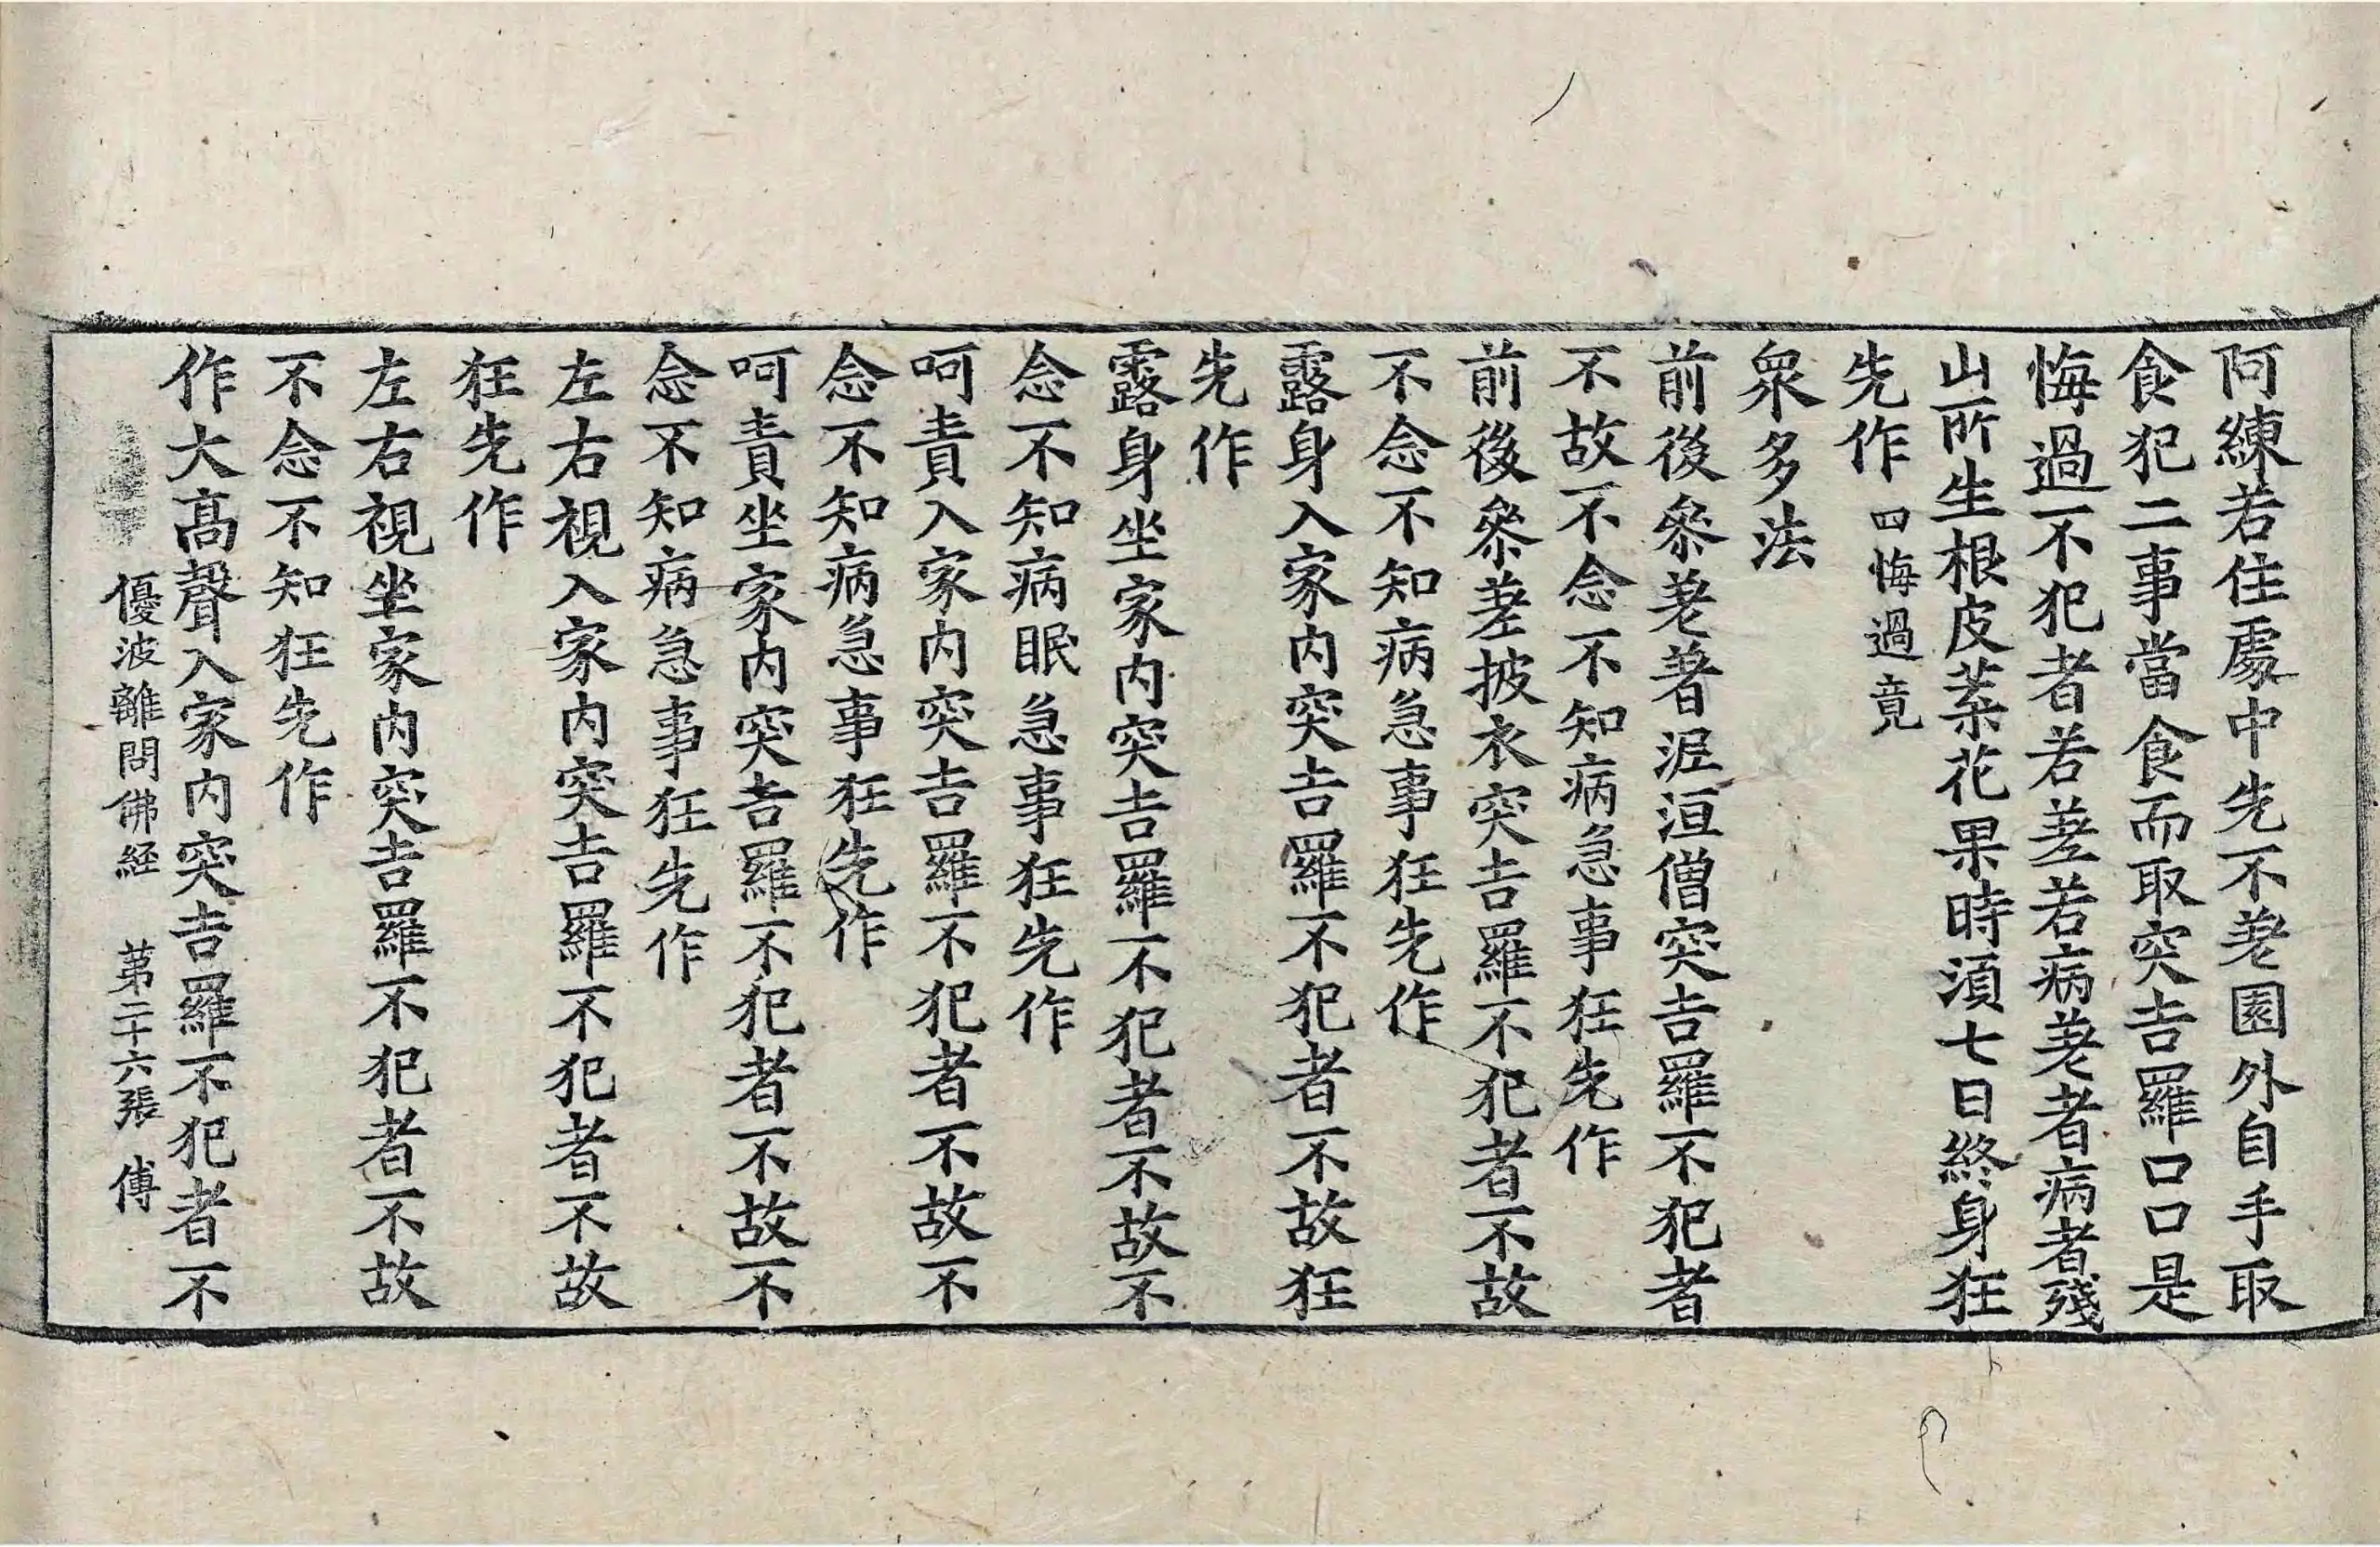 阿練若住處中先不差園外自手取
食犯二事當食而取突吉羅口口是
悔過不犯者若差若病差者病者殘
山所生根皮葉花果時湏七日終身狂
先作 四悔過竟
衆多法
前後叅差著泥洹僧突吉羅不犯者
不故不念不知病急事狂先作
前後叅差披衣突吉羅不犯者不故
不念不知病急事狂先作
露身入家内突吉羅不犯者不故狂
先作
露身坐家内突吉羅不犯者不故不
念不知病眠急事狂先作
呵責入家内突吉羅不犯者不故不
念不知病急事狂先作
呵責坐家内突吉羅不犯者不故不
念不知病急事狂先作
左右視入家内突吉羅不犯者不故
狂先作
左右視坐家内突吉羅不犯者不故
不念不知狂先作
作大髙聲入家内突吉羅不犯者不
優波離問佛経 苐二十六張 傅